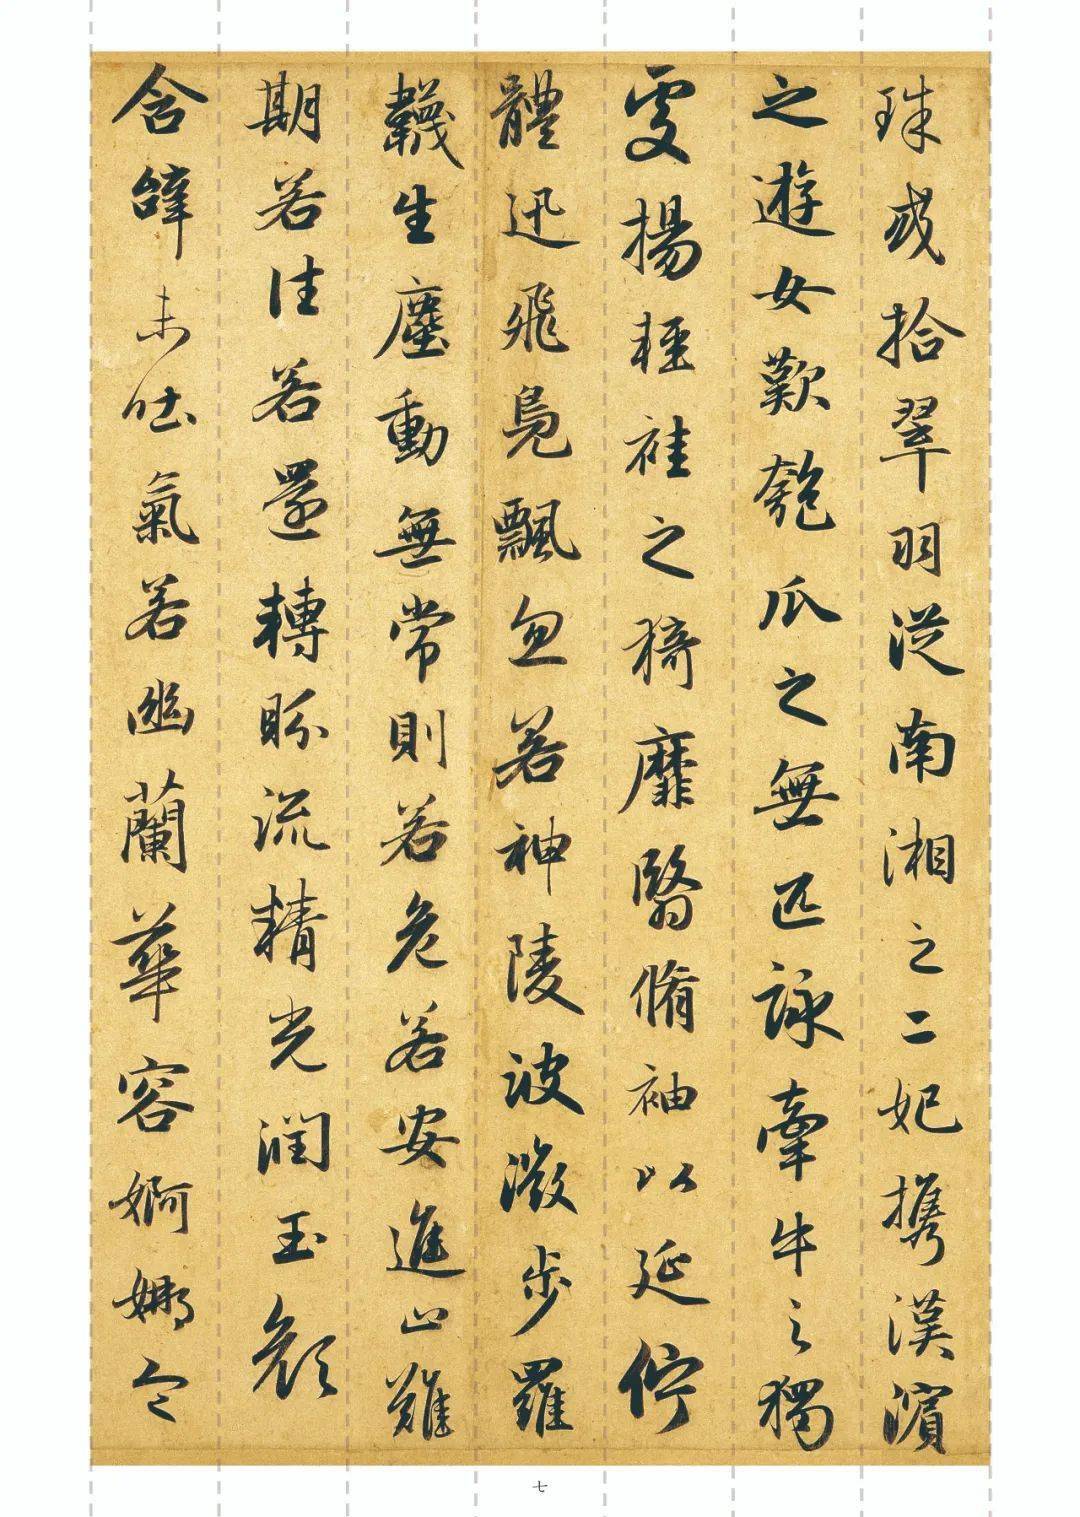 珠或拾翠羽從南湘之二妃攜漢濱
之遊女歎匏瓜之無匹詠牽牛之獨
處揚輕袿之猗靡翳脩袖以延佇
體迅飛鳧飄忽若神陵波微步羅
韈生塵動無常則若危若安進止難
期若往若還轉眄流精光潤玉顏
含辭未吐氣若幽蘭華容婀娜令
七